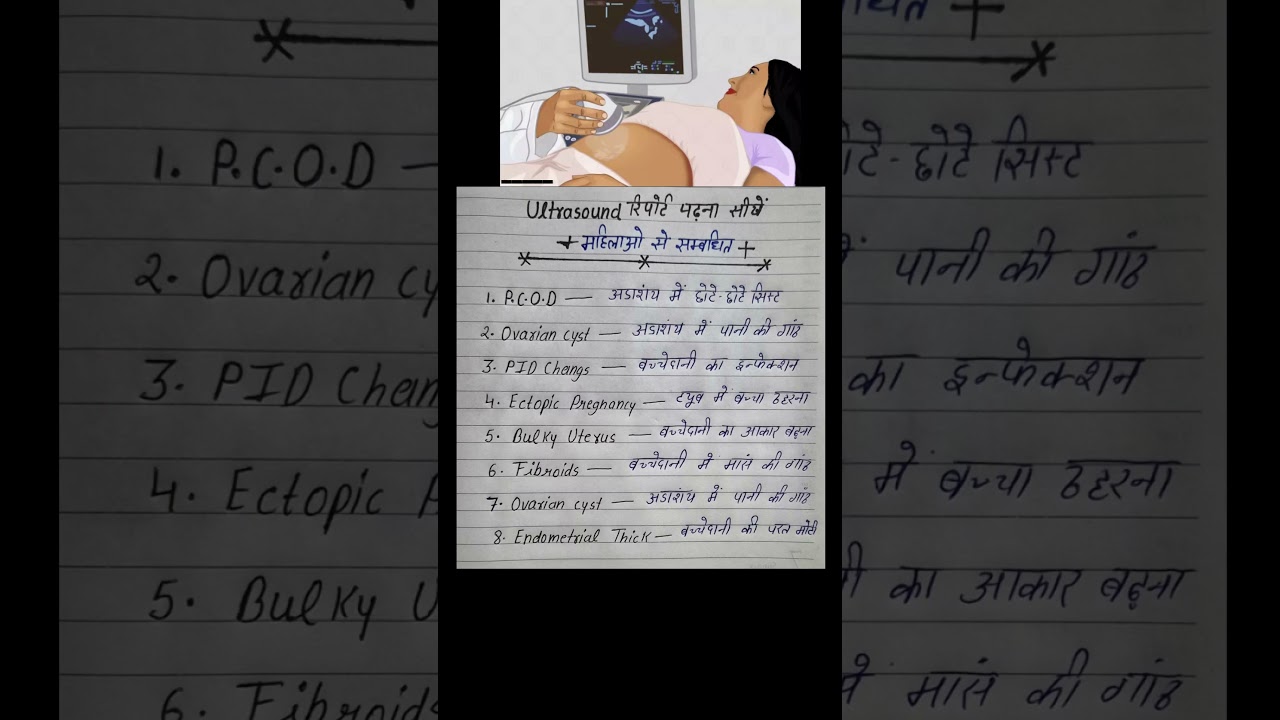 Ultrasound रिपोर्ट पढ़ना सीखें
महिलाओ से सम्बधित
1. P.C.O.D — अडाशंय में छोटे-छोटे सिस्ट
2. Ovarian cyst — अडाशंय में पानी की गांठ
3. PID Changs — बच्चेदानी का इन्फेक्शन
4. Ectopic Pregnancy — ट्यूब में बच्चा ठहरना
5. Bulky Uterus — बच्चेदानी का आकार बढ़ना
6. Fibroids — बच्चेदानी में मासं की गांठ
7. Ovarian cyst — अडाशंय में पानी की गांठ
8. Endometrial Thick — बच्चेदानी की परत मोटी